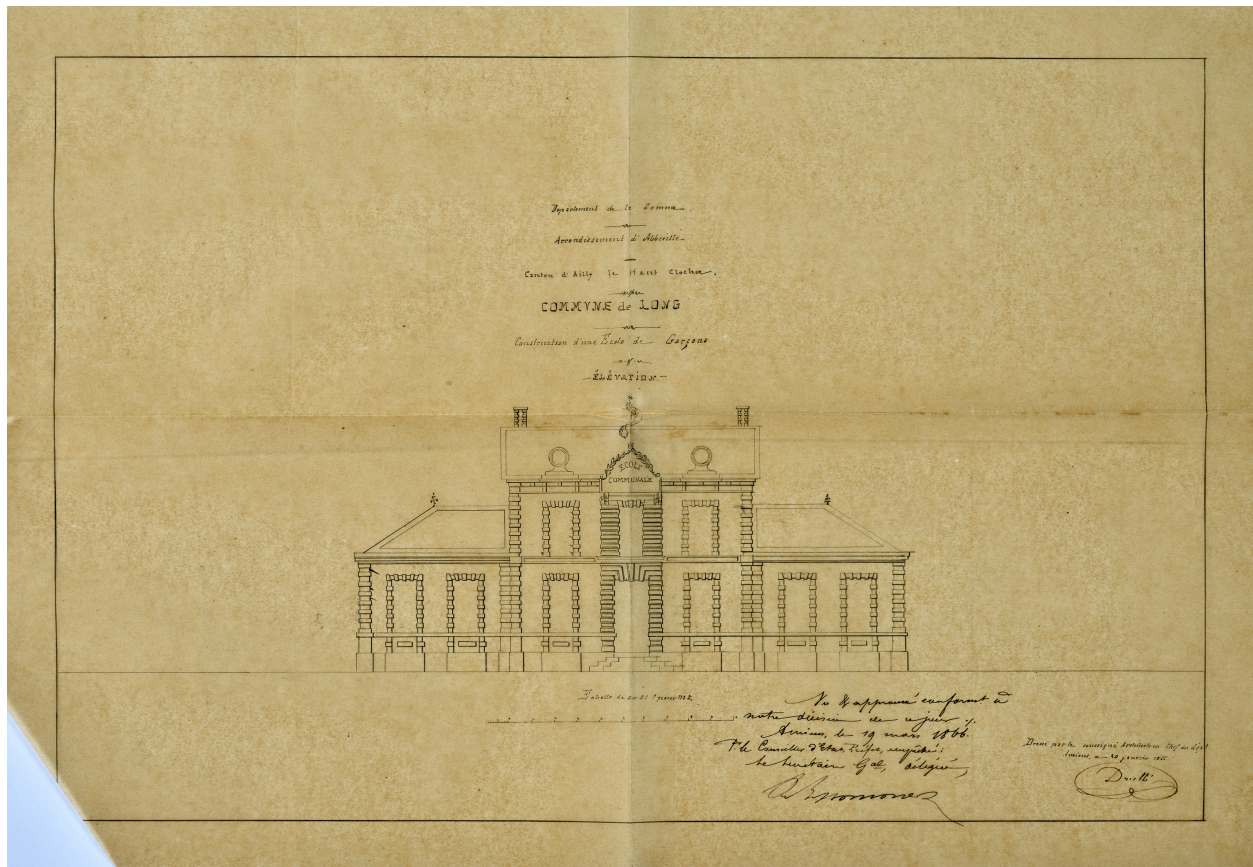 Département de la Somme.
Arrondissement d'Abbeville
Canton d'Ailly le Haut Clocher.
COMMVNE de LONG
Construction d'une École de Garçons
ÉLÉVATION.
ÉCOLE
COMMUNALE
Échelle de
Vu & approuvé conformt à
notre décision de ce jour ./.
Amiens, le 19 mars 1866.
Pr le Conseiller d'Etat, Préfet, empêché:
Le Secrétaire Gal, délégué,
Dressé par le soussigné Architecte en Chef du
Amiens, 20 janvier